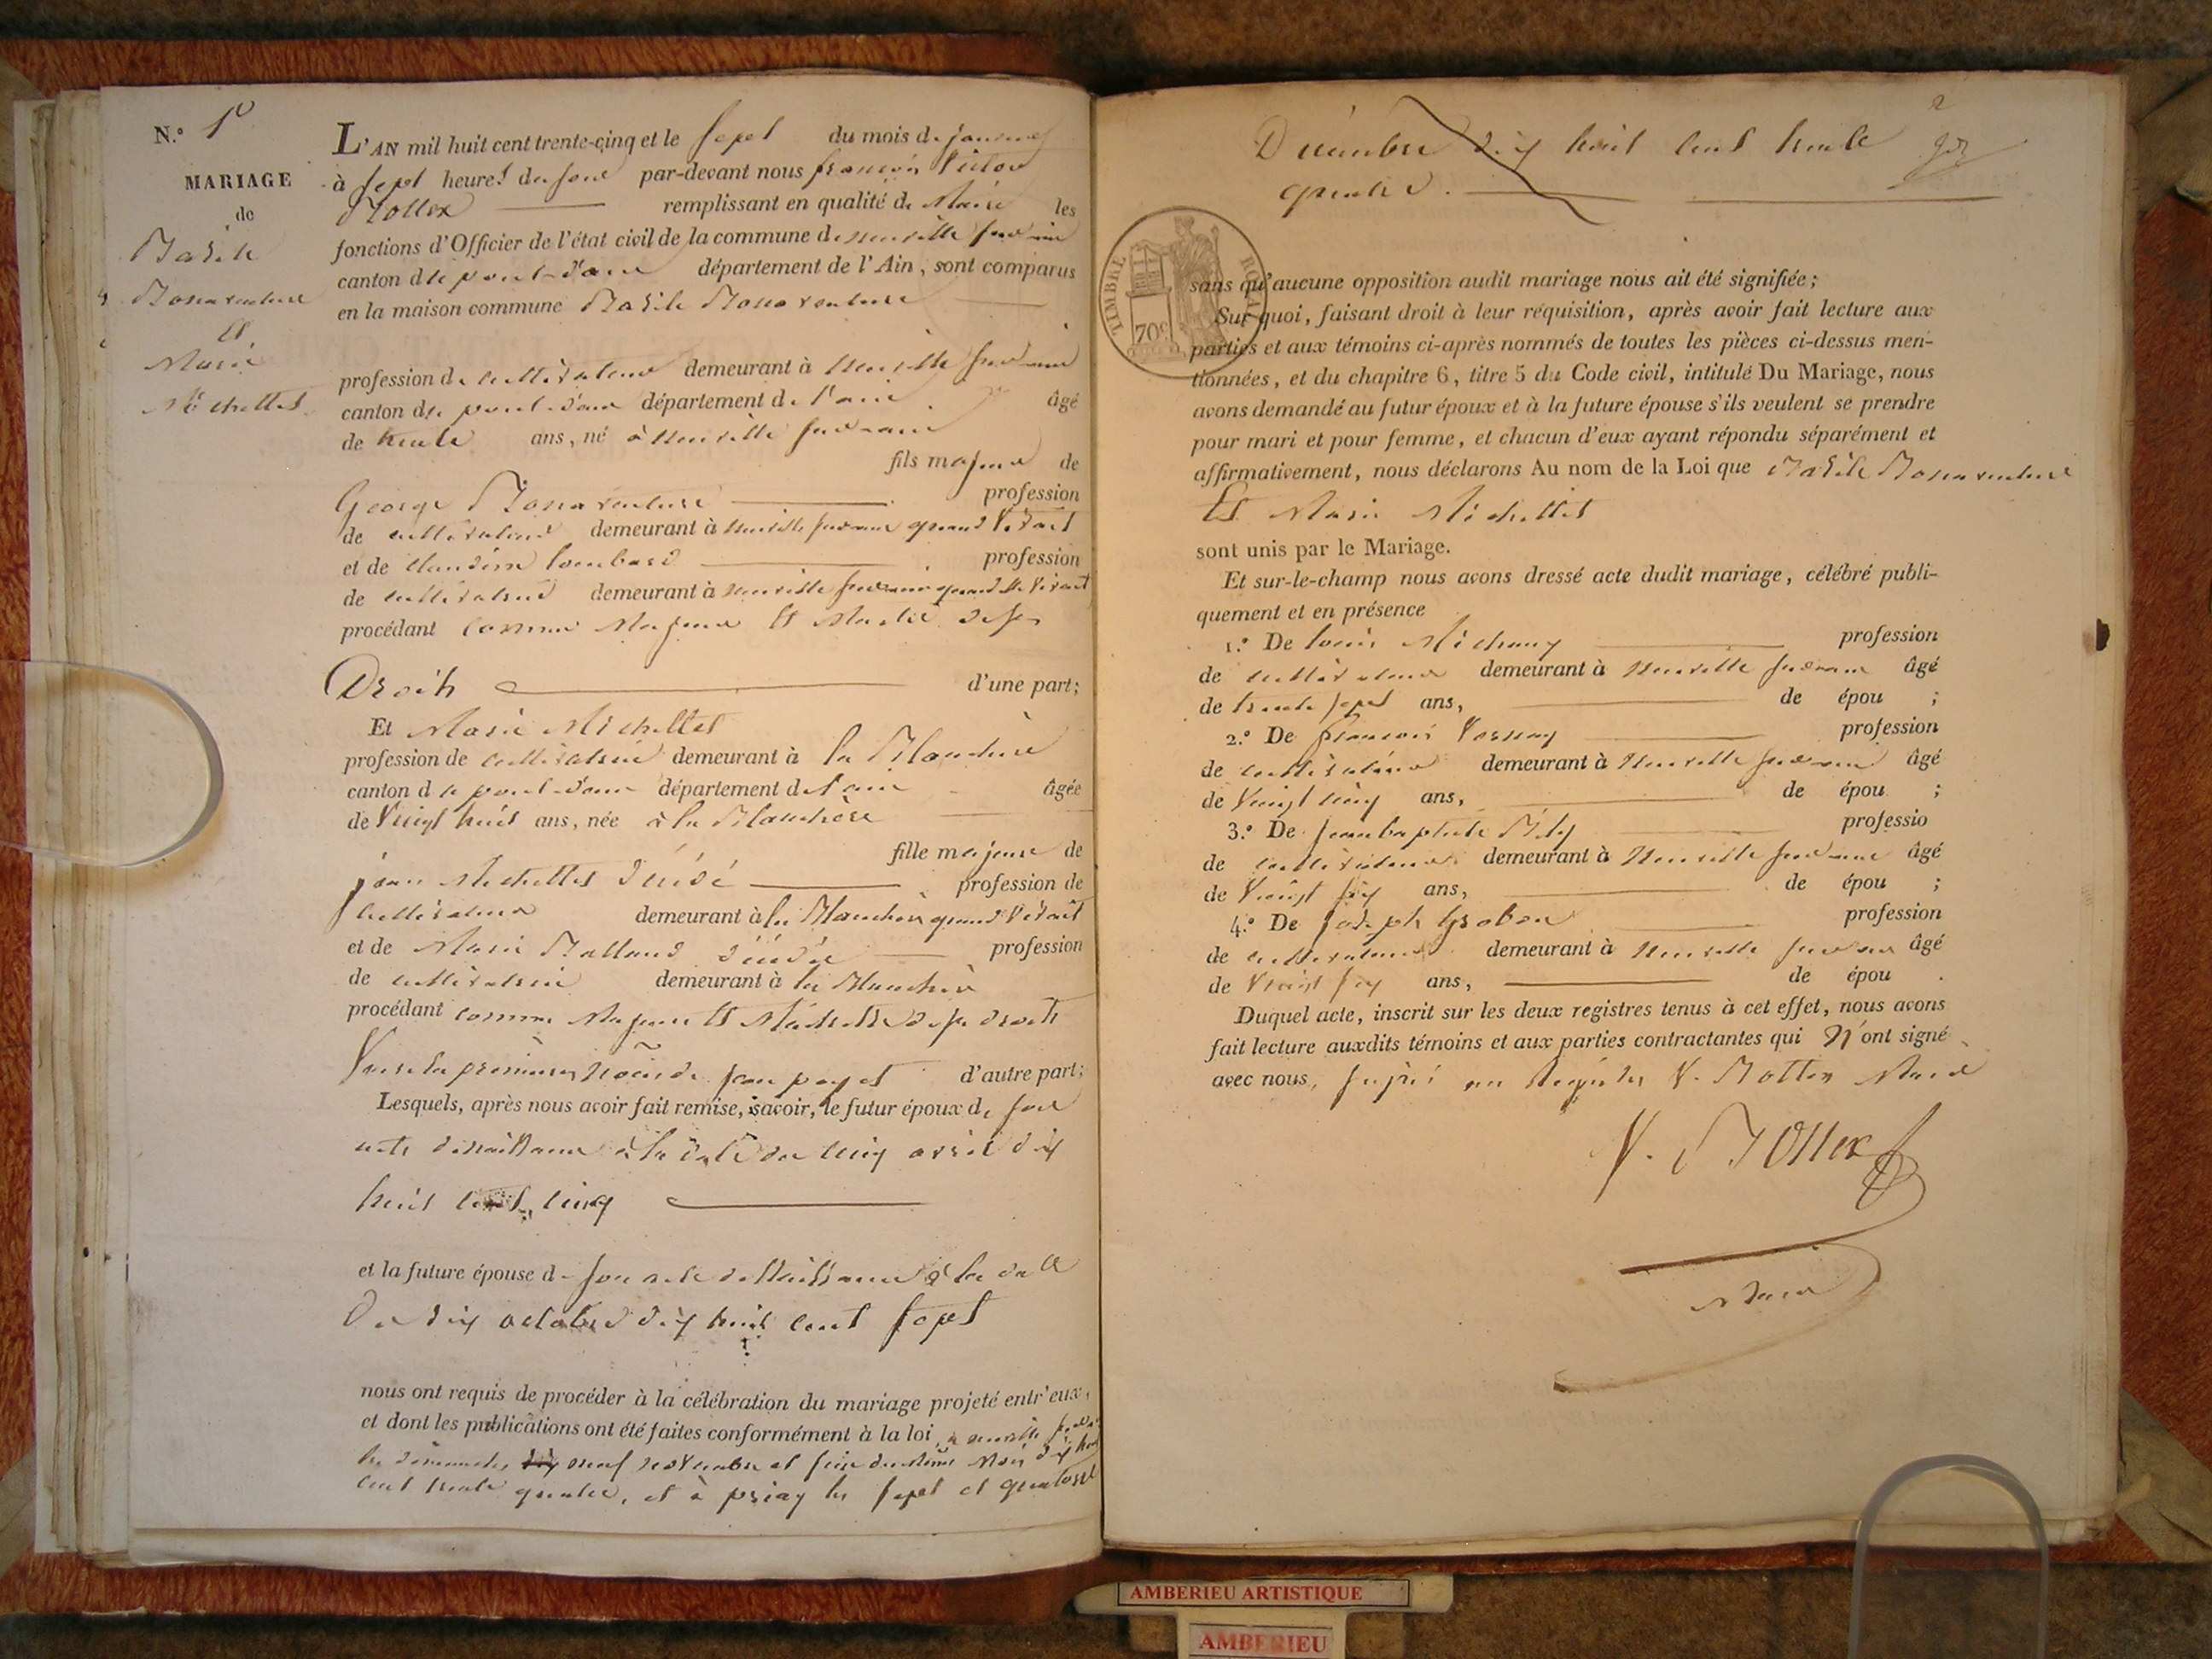 N.º 1er
MARIAGE
de
Basile
Bonaventure
et
Marie
Michellet
L'AN mil huit cent trente-cinq et le sept du mois de janvier
à sept heures du soir par-devant nous françois Victor
Bottex remplissant en qualité de Maire les
fonctions d'Officier de l'état civil de la commune de neuville sur ain
canton de pont-d'ain département de l'Ain, sont comparus
en la maison commune Basile Bonaventure
profession de cultivateur demeurant à neuville sur ain
canton de pont-d'ain département de l'ain âgé
de trente ans, né à neuville sur ain
fils majeur de
George Bonaventure profession
de cultivateur demeurant à neuville sur ain quand Vivait
et de Claudine Lombard profession
de cultivatrice demeurant à neuville sur ain quand elle Vivait
procédant comme Majeur et Maitre de ses
Droits d'une part;
Et Marie Michellet
profession de cultivatrice demeurant à la Blanchère
canton de pont-d'ain département de l'ain âgée
de Vingt huit ans, née à la Blanchère
fille majeure de
jean Michellet décédé profession de
cultivateur demeurant à la Blanchère quand Vivait
et de Marie Balland décédée profession
de cultivatrice demeurant à la Blanchère
procédant comme Majeure et Maitresse de ses droits
Veuve en premières Noces de jean payet d'autre part;
Lesquels, après nous avoir fait remise, savoir, le futur époux de son
acte de naissance à la date du cinq avril dix
huit cent cinq
et la future épouse de son acte de Naissance à la date
Du dix octobre dix huit cent sept
nous ont requis de procéder à la célébration du mariage projeté entr'eux,
et dont les publications ont été faites conformément à la loi, à neuville sur ain
les dimanches neuf novembre et seize du même Mois dix huit
cent trente quatre, et à priay les sept et quatorze
2
Décembre dix huit cent trente
quatre.
TIMBRE ROYAL
70c
sans qu'aucune opposition audit mariage nous ait été signifiée;
Sur quoi, faisant droit à leur réquisition, après avoir fait lecture aux
parties et aux témoins ci-après nommés de toutes les pièces ci-dessus men-
tionnées, et du chapitre 6, titre 5 du Code civil, intitulé Du Mariage, nous
avons demandé au futur époux et à la future épouse s'ils veulent se prendre
pour mari et pour femme, et chacun d'eux ayant répondu séparément et
affirmativement, nous déclarons Au nom de la Loi que Basile Bonaventure
Et Marie Michellet
sont unis par le Mariage.
Et sur-le-champ nous avons dressé acte dudit mariage, célébré publi-
quement et en présence
1.º De Louis Michaux profession
de cultivateur demeurant à Neuville sur ain âgé
de trente sept ans, de épou ;
2.º De françois Vernay profession
de cultivateur demeurant à Neuville sur ain âgé
de Vingt cinq ans, de épou ;
3.º De jean baptiste profession
de cultivateur demeurant à Neuville sur ain âgé
de Vingt six ans, de épou ;
4.º De joseph Grobon profession
de cultivateur demeurant à Neuville sur ain âgé
de Vingt six ans, de épou .
Duquel acte, inscrit sur les deux registres tenus à cet effet, nous avons
fait lecture auxdits témoins et aux parties contractantes qui N'ont signé
avec nous, signé au Registre V. Bottex Maire
V. Bottex
Maire
AMBERIEU ARTISTIQUE
AMBERIEU